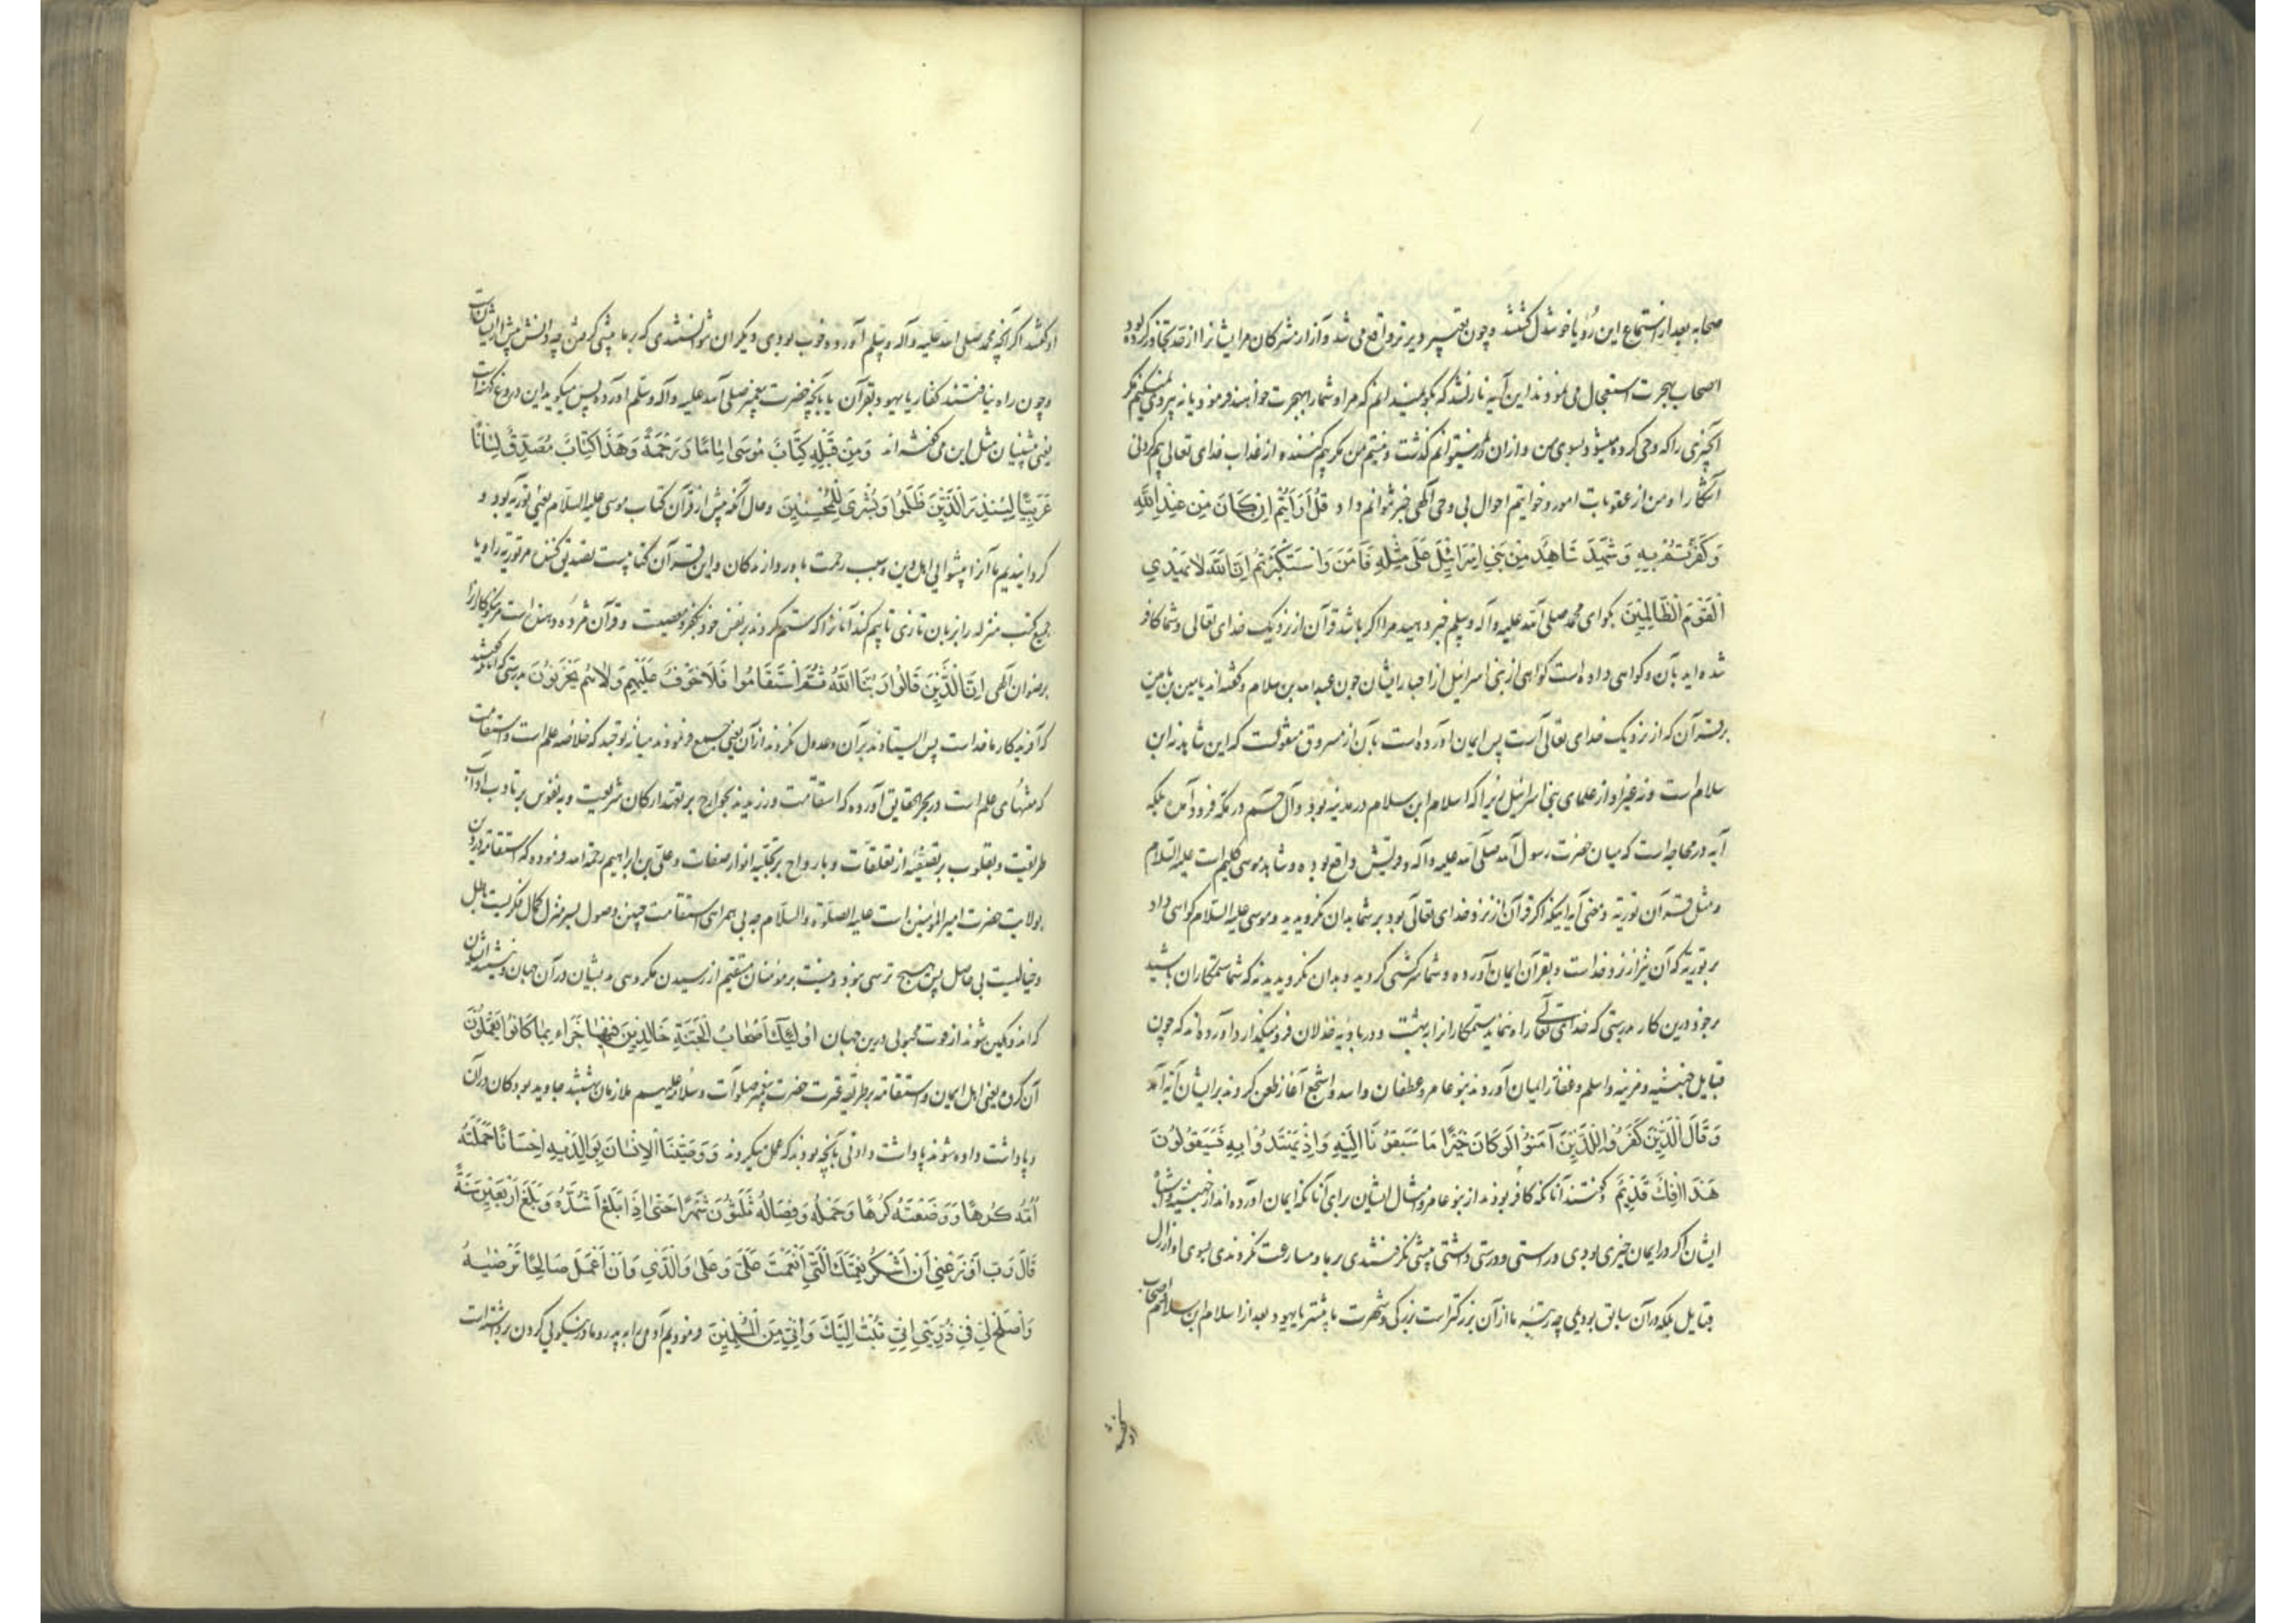 صحابه بعد از استماع این رؤیا خوشدل گشتند و چون تعبیر دیرتر واقع می شد و آزار مشرکان مر ایشانرا از حد تجاوز کرده بود
اصحاب بهجرت استعجال می نمودند این آیه نازلشد که بگو نمیدانم که مرا و شما را بهجرت خواهند فرمود یا نه پیروی نمیکنم مگر
آنچیزی را که وحی کرده میشود بسوی من و از ان در نمیتوانم گذشت و نیستم من مگر بیم کننده از عذاب خدای تعالی بیم کردنی
آشکارا و من از عقوبات امور و خواتیم احوال بی وحی الهی خبر نتوانم داد قُلْ اَرَاَیْتُمْ اِنْ کَانَ مِنْ عِنْدِ اللّٰهِ
وَکَفَرْتُمْ بِهِ وَشَهِدَ شَاهِدٌ مِنْ بَنِی اِسْرَائِیلَ عَلَی مِثْلِهِ فَآمَنَ وَاسْتَکْبَرْتُمْ اِنَّ اللّٰهَ لَا یَهْدِی
الْقَوْمَ الظَّالِمِینَ بگو ای محمد صلی الله علیه و آله و سلم خبر دهید مرا اگر باشد قرآن از نزدیک خدای تعالی و شما کافر
شده اید بآن و گواهی داده است گواهی از بنی اسرائیل از احبار ایشان چون عبدالله بن سلام و گفته اند یامین بن یامین
بر قرآن که از نزدیک خدای تعالی است پس ایمان آورده است بآن از مسروق منقولست که این شاهد نه ابن
سلام است و نه غیر او از علمای بنی اسرائیل زیرا که اسلام ابن سلام در مدینه بود و آل حم در مکه فرود آمده بلکه
آیه در محاجه است که میان حضرت رسول الله صلی الله علیه و آله و قریش واقع بوده و شاهد موسی کلیم است علیه السلام
و مثل قرآن توریة و معنی آیه اینکه اگر قرآن از نزد خدای تعالی بود بر شما بدان نگرویدید و موسی علیه السلام گواهی داد
بر توریة که آن نیز از نزد خداست و بقرآن ایمان آورده و شما سرکشی کردید و بدان نگرویدید نه که شما ستمکاران باشید
بر خود درین کار بدرستی که خدای تعالی راه ننماید ستمکارانرا به بهشت و در بادیه خذلان فرو میگذارد آورده اند که چون
قبایل جهینه و مزینه و اسلم و غفار ایمان آوردند بنو عامر و غطفان و اسد و اشجع آغاز طعن کردند بر ایشان آیه آمد
وَقَالَ الَّذِینَ کَفَرُوا لِلَّذِینَ آمَنُوا لَوْ کَانَ خَیْرًا مَا سَبَقُونَا اِلَیْهِ وَاِذْ لَمْ یَهْتَدُوا بِهِ فَسَیَقُولُونَ
هَذَا اِفْکٌ قَدِیمٌ و گفتند آنانکه کافر بودند از بنو عامر و امثال ایشان برای آنانکه ایمان آورده اند از جهینه و اشباه
ایشان اگر در ایمان خیری بودی و راستی و درستی داشتی پیشی نگرفتندی بر ما و مسارعت نکردندی بسوی او اراذل
قبایل بلکه در آن سابق بودیمی چه رتبه ما از آن بزرگتر است بزرگی و شهرت ما بیشتر یا یهود بعد از اسلام ابن سلام و اصحاب
او گفتند
او گفتند اگر آنچه محمد صلی الله علیه و آله و سلم آورده خوب بودی دیگران نتوانستندی که بر ما پیشی گرفتن چه دانش ما بیش از ایشانست
و چون راه نیافتند کفار یا یهود بقرآن یا بآنچه حضرت پیغمبر صلی الله علیه و آله و سلم آورد پس میگویند این دروغ کهنه است
یعنی پیشینیان مثل این می گفته اند وَمِنْ قَبْلِهِ کِتَابُ مُوسَی اِمَامًا وَرَحْمَةً وَهَذَا کِتَابٌ مُصَدِّقٌ لِسَانًا
عَرَبِیًّا لِیُنْذِرَ الَّذِینَ ظَلَمُوا وَبُشْرَی لِلْمُحْسِنِینَ و حال آنکه پیش از قرآن کتاب موسی علیه السلام یعنی توریه بود و
گردانیدیم ما آنرا پیشوای اهل دین و سبب رحمت باور دارندگان و این قرآن کتابیست تصدیق کننده مر توریه را و یا
جمیع کتب منزله را بزبان تازی تا بیم کند آنانرا که ستم کردند بر نفس خود بکفر و معصیت و قرآن مژده دهنده است مر نیکوکارانرا
برضوان الهی اِنَّ الَّذِینَ قَالُوا رَبُّنَا اللّٰهُ ثُمَّ اسْتَقَامُوا فَلَا خَوْفٌ عَلَیْهِمْ وَلَا هُمْ یَحْزَنُونَ بدرستی که آنانکه گفتند
که آفریدگار ما خداست پس ایستادند بر آن و عدول نکردند از آن یعنی جمع فرمودند میان توحید که خلاصه علم است و استقامت
که منتهای علم است در بحر الحقایق آورده که استقامت ورزیدند بجوارح بر تمهید ارکان شریعت و بنفوس بر تادب بآداب
طریقت و بقلوب بر تصفیه از تعلقات و بارواح بر تجلیه انوار صفات و علی بن ابراهیم رحمه الله فرموده که استقامت در دین
بولایت حضرت امیر المؤمنین است علیه الصلوة و السلام چه بی همراهی استقامت چنین وصول بسر منزل کمال فکریست باطل
و خیالیست بی حاصل پس هیچ ترسی نبود و نیست بر مؤمنان مستقیم از رسیدن مکروهی بدیشان در آن جهان و نیستند ایشان
که اندوهگین شوند از فوت محبوبی درین جهان اُولَئِکَ اَصْحَابُ الْجَنَّةِ خَالِدِینَ فِیهَا جَزَاءً بِمَا کَانُوا یَعْمَلُونَ
آن گروه یعنی اهل ایمان و استقامت بر طریقه عترت حضرت پیغمبر صلوات و سلامه علیهم ملازمان بهشتند جاوید بودگان در آن
و پاداشت داده شوند پاداشت دادنی بآنچه بودند که عمل میکردند وَوَصَّیْنَا الْاِنْسَانَ بِوَالِدَیْهِ اِحْسَانًا حَمَلَتْهُ
اُمُّهُ کُرْهًا وَوَضَعَتْهُ کُرْهًا وَحَمْلُهُ وَفِصَالُهُ ثَلٰثُونَ شَهْرًا حَتَّی اِذَا بَلَغَ اَشُدَّهُ وَبَلَغَ اَرْبَعِینَ سَنَةً
قَالَ رَبِّ اَوْزِعْنِی اَنْ اَشْکُرَ نِعْمَتَکَ الَّتِی اَنْعَمْتَ عَلَیَّ وَعَلَی وَالِدَیَّ وَاَنْ اَعْمَلَ صَالِحًا تَرْضٰیهُ
وَاَصْلِحْ لِی فِی ذُرِّیَّتِی اِنِّی تُبْتُ اِلَیْکَ وَاِنِّی مِنَ الْمُسْلِمِینَ و فرمودیم آدمی را به پدر و مادر نیکویی کردن